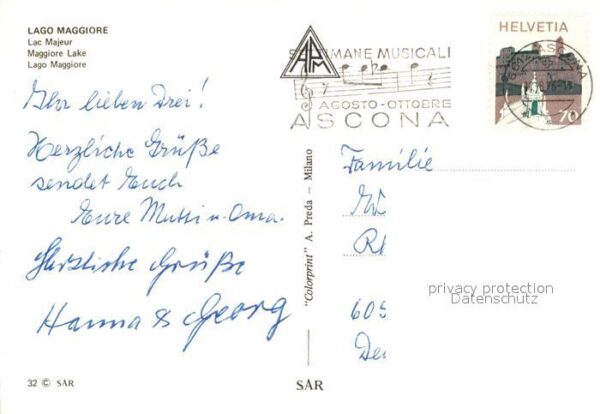 LAGO MAGGIORE
Lac Majeur
Maggiore Lake
Lago Maggiore
SETTIMANE MUSICALI
AGOSTO - OTTOBRE
ASCONA
HELVETIA
70
Ihr lieben Drei!
Herzliche Grüße
sendet Euch
Eure Mutti u. Oma.
Herzliche Grüße
Hanna & Georg
"Colorprint" A. Preda – Milano
Familie
605
privacy protection
Datenschutz
32 © SAR
SAR